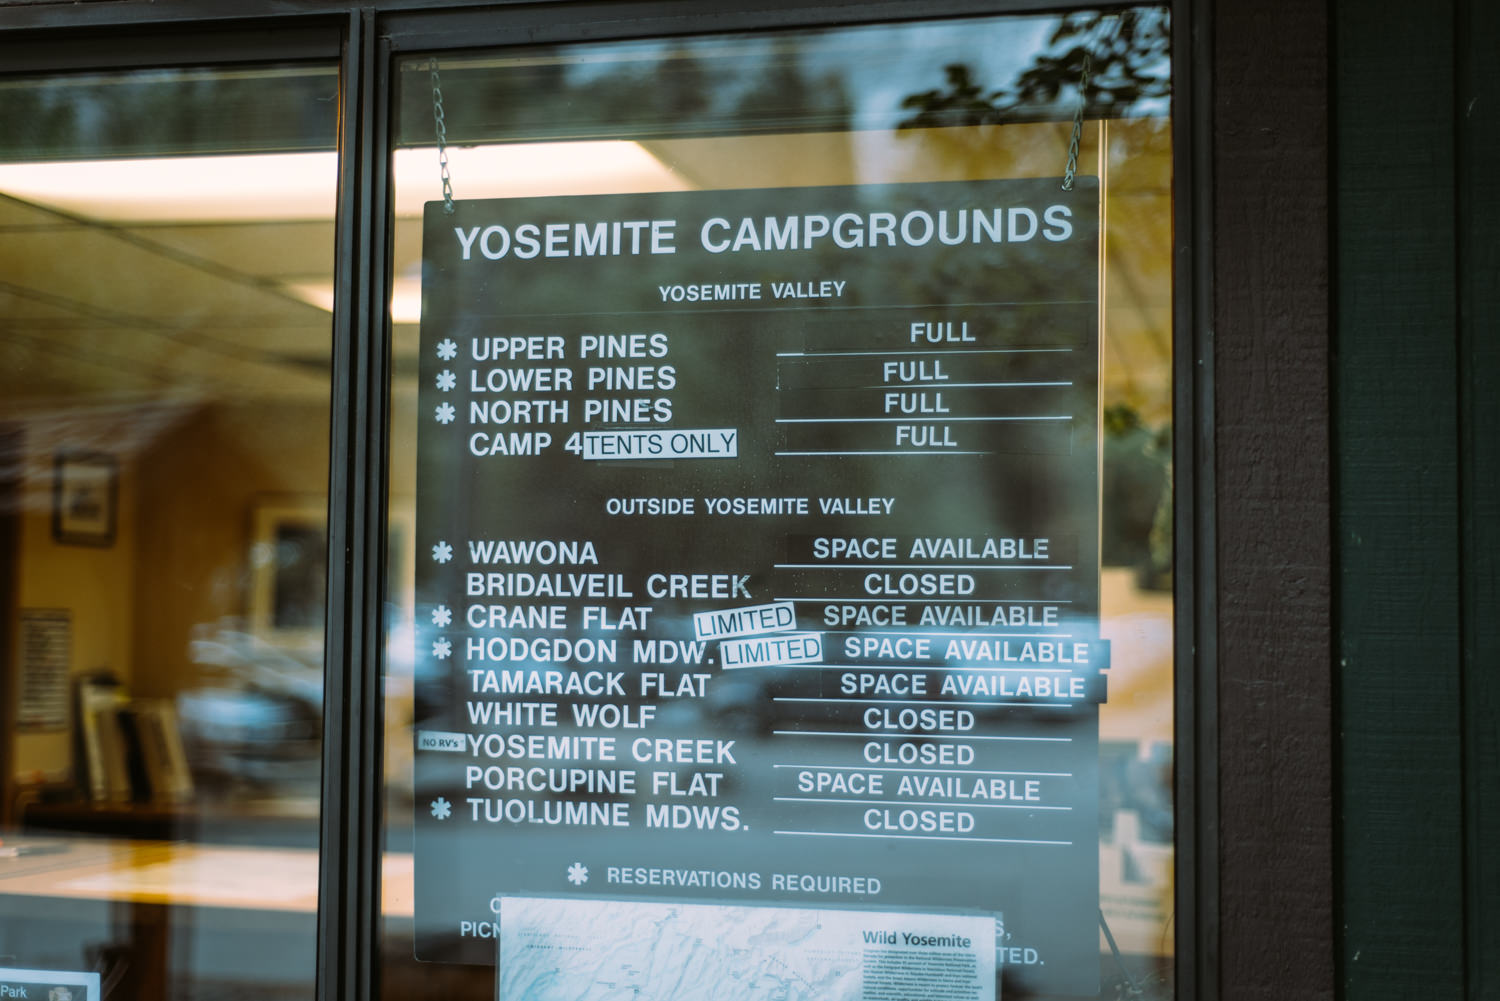 YOSEMITE CAMPGROUNDS
YOSEMITE VALLEY
* UPPER PINES FULL
* LOWER PINES FULL
* NORTH PINES FULL
CAMP 4 TENTS ONLY FULL
OUTSIDE YOSEMITE VALLEY
* WAWONA SPACE AVAILABLE
BRIDALVEIL CREEK CLOSED
* CRANE FLAT LIMITED SPACE AVAILABLE
* HODGDON MDW. LIMITED SPACE AVAILABLE
TAMARACK FLAT SPACE AVAILABLE
WHITE WOLF CLOSED
NO RV's YOSEMITE CREEK CLOSED
PORCUPINE FLAT SPACE AVAILABLE
* TUOLUMNE MDWS. CLOSED
* RESERVATIONS REQUIRED
Wild Yosemite
Park